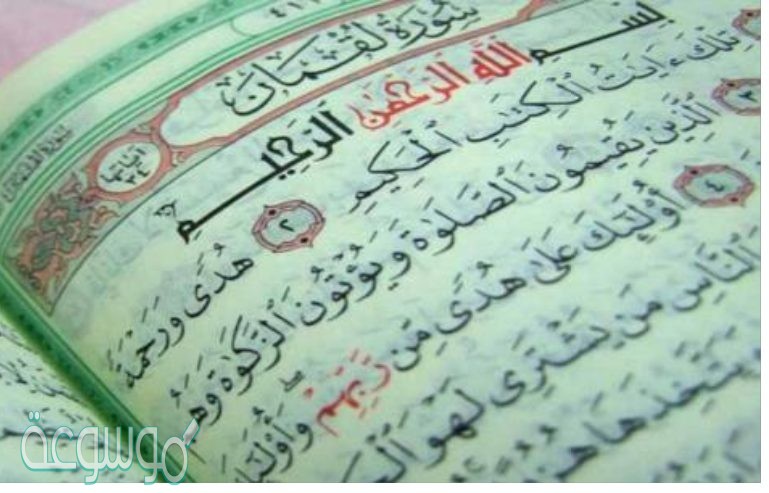 ٤١١
سُورَةُ لُقْمَانَ
آيَاتُهَا ٣٤
بِسْمِ ٱللَّهِ ٱلرَّحْمَٰنِ ٱلرَّحِيمِ
تِلْكَ ءَايَٰتُ ٱلْكِتَٰبِ ٱلْحَكِيمِ ٢ هُدًى وَرَحْمَةً
٣ ٱلَّذِينَ يُقِيمُونَ ٱلصَّلَوٰةَ وَيُؤْتُونَ ٱلزَّكَوٰةَ وَهُم
٤ أُو۟لَٰٓئِكَ عَلَىٰ هُدًى مِّن رَّبِّهِمْ ۖ وَأُو۟لَٰٓئِكَ
ٱلنَّاسِ مَن يَشْتَرِى لَهْوَ
وَيَتَّخِذَهَا
موسوعة